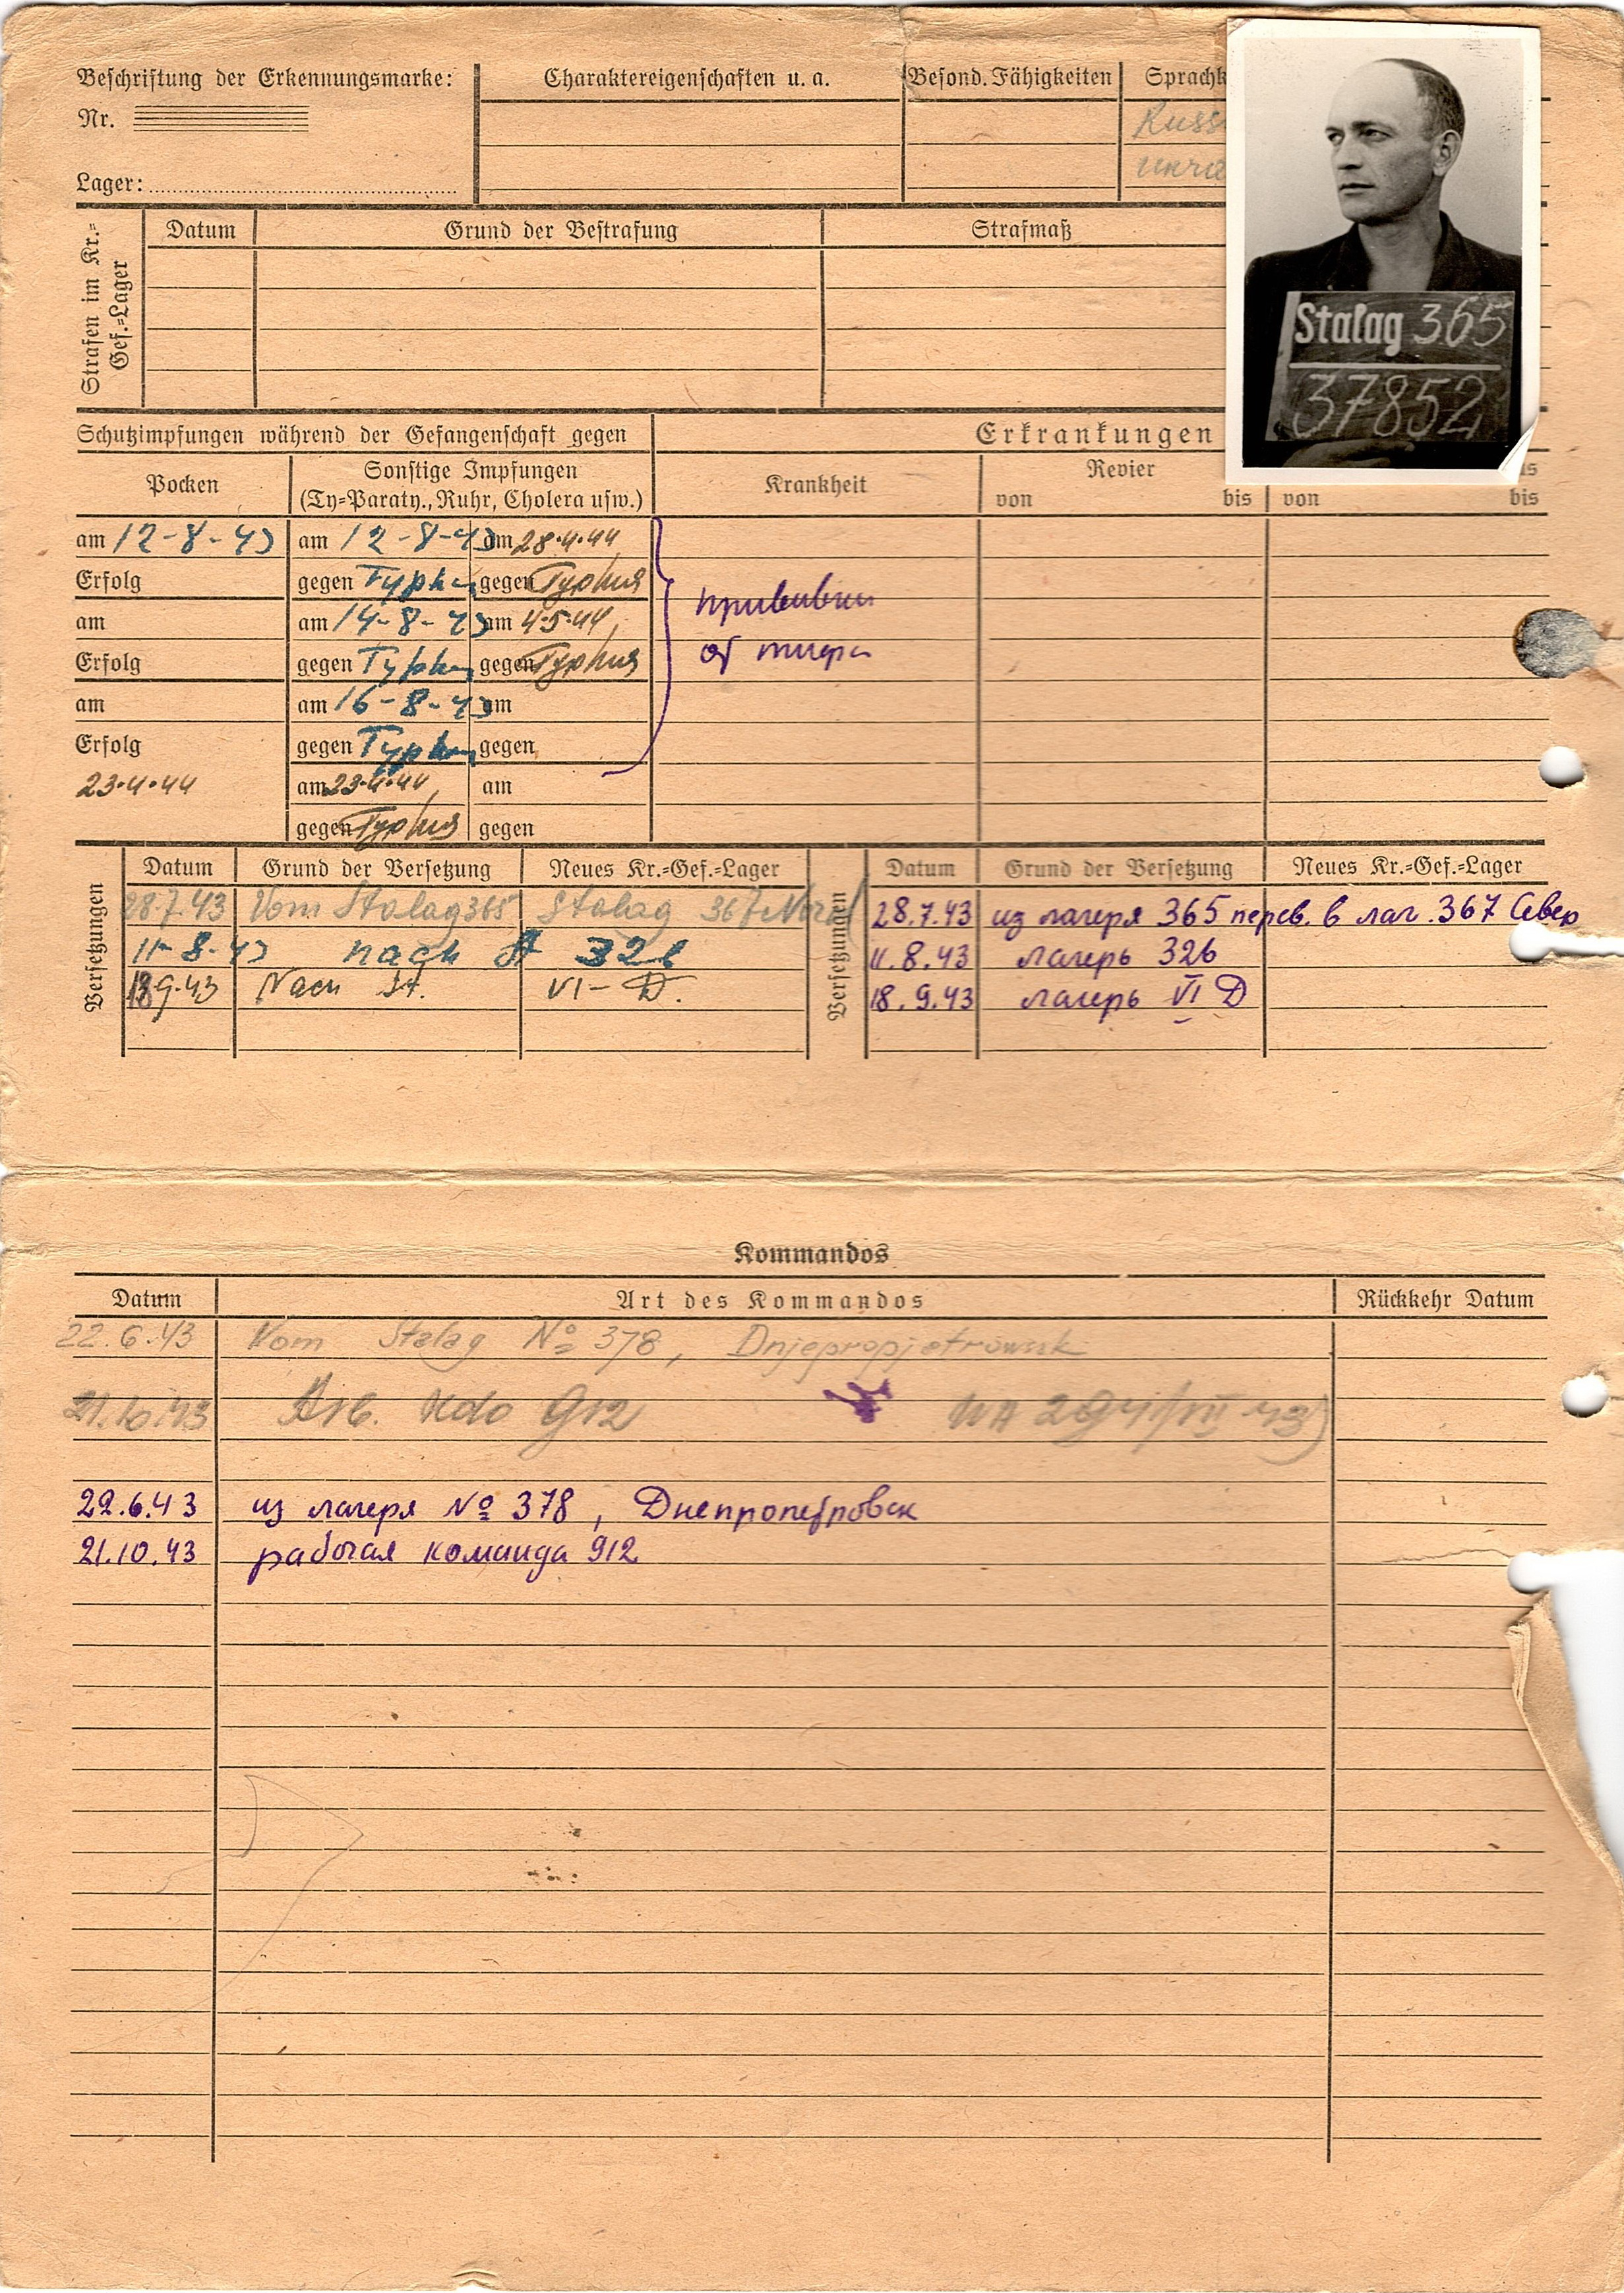 Beschriftung der Erkennungsmarke:
Nr.
Lager:
Charaktereigenschaften u. a.
Besond. Fähigkeiten
Sprachk
Russ
Stalag 365
37852
Strafen im Kr.=
Gef.=Lager
Datum
Grund der Bestrafung
Strafmaß
Schutzimpfungen während der Gefangenschaft gegen
Erkrankungen
Pocken
Sonstige Impfungen
(Ty=Paraty., Ruhr, Cholera usw.)
Krankheit
Revier
von bis
von bis
am 12-8-43 am 12-8-43 am 28.4.44
Erfolg gegen Typhus gegen Typhus
am am 14-8-43 am 4.5.44
Erfolg gegen Typhus gegen Typhus
am am 16-8-43 am
Erfolg gegen Typhus gegen
23.4.44 am 23.4.44 am
gegen Typhus gegen
прививки
от тифа
Versetzungen
Datum Grund der Versetzung Neues Kr.=Gef.=Lager
28.7.43 Vom Stalag 365 Stalag 367 Nord
11-8-43 nach St 326
18.9.43 Nach St. VI-D.
Versetzungen
Datum Grund der Versetzung Neues Kr.=Gef.=Lager
28.7.43 из лагеря 365 перев. в лаг. 367 Север
11.8.43 лагерь 326
18.9.43 лагерь VI D
Kommandos
Datum Art des Kommandos Rückkehr Datum
22.6.43 Vom Stalag № 378, Dnjepropjetrowsk
21.10.43 Arb. Kdo 912
22.6.43 из лагеря № 378, Днепропетровск
21.10.43 рабочая команда 912